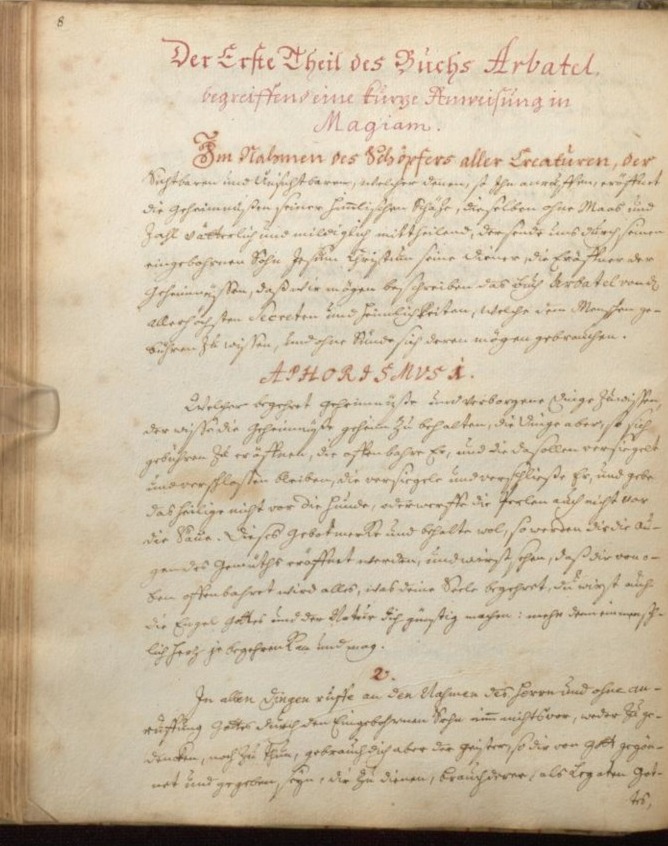 8
Der Erste Theil des Buchs Arbatel,
begreiffend eine kurtze Anweisung in
Magiam.
Im Nahmen des Schöpfers aller Creaturen, der
Sichtbaren und Unsichtbaren, welcher denen, so Ihn anruffen, eröffnet
die Geheimnüßen seiner Himlischen Schätze, dieselben ohne Maas und
Zahl vätterlich und mildiglich mittheilend, der sende uns durch seinen
eingebohrnen Sohn Jesum Christum seine Diener, die Eröffner der
Geheimnüssen, daß wir mögen beschreiben das Buch Arbatel von den
allerhöchsten Secreten und Heimlichkeiten, welche dem Menschen ge-
bühren zu wissen, und ohne Sünde sich deren mögen gebrauchen.
APHORISMUS 1.
Welcher begehret Geheimnüße und verborgene Dinge zu wissen,
der wisse die Geheimnüße geheim zu behalten, die Dinge aber, so sich
gebühren zu eröffnen, die offenbahre Er, und die da sollen versiegelt
und verschlossen bleiben, die versiegele und verschließe Er, und gebe
das heilige nicht vor die Hunde, oder werffe die Perlen auch nicht vor
die Säue. Dieses Gebot mercke und behalte wol, so werden dir die Au-
gen des Gemüths eröffnet werden, und wirst sehen, daß dir von o-
ben offenbahret wird alles, was deine Seele begehret, du wirst auch
die Engel Gottes und der Natur dich günstig machen: mehr denn ein mensch-
lich Hertz je begehren kan und mag.
2.
In allen Dingen ruffe an den Nahmen des Herrn und ohne an-
ruffung Gottes durch den Eingebohrnen Sohn nimm nichts vor, weder zu ge-
dencken, noch zu thun, gebrauch dich aber der Geister, so dir von Gott gegön-
net und gegeben seyn, dir zu dienen, brauch derer, als Legaten Got-
tes,